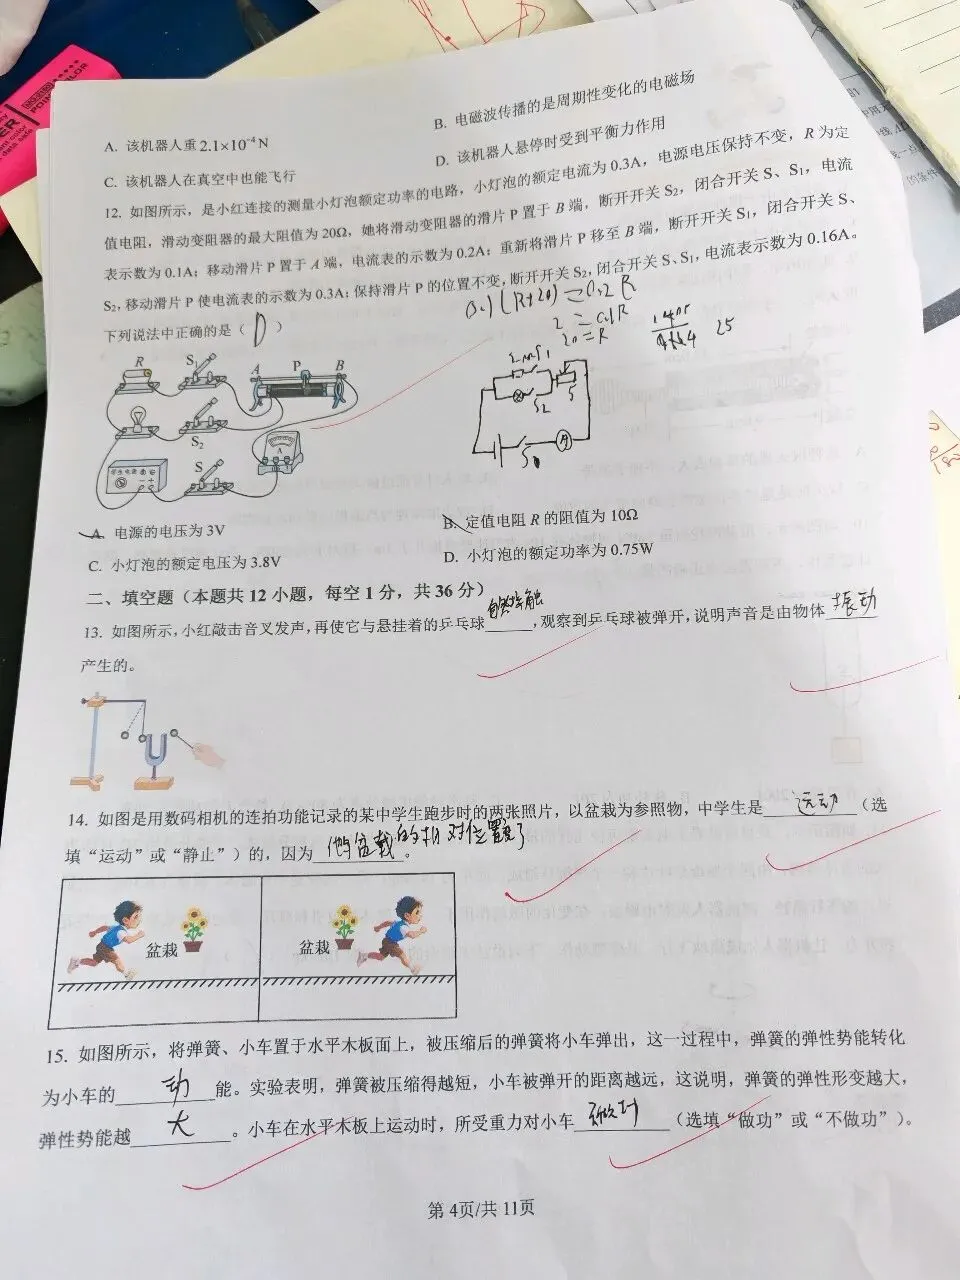 A. 该机器人重2.1×10⁻⁴N
B. 电磁波传播的是周期性变化的电磁场
C. 该机器人在真空中也能飞行
D. 该机器人悬停时受到平衡力作用
12. 如图所示，是小红连接的测量小灯泡额定功率的电路，小灯泡的额定电流为0.3A，电源电压保持不变，R为定
值电阻，滑动变阻器的最大阻值为20Ω，她将滑动变阻器的滑片P置于B端，断开开关S₂，闭合开关S、S₁，电流
表示数为0.1A；移动滑片P置于A端，电流表的示数为0.2A；重新将滑片P移至B端，断开开关S₁，闭合开关S、
S₂，移动滑片P使电流表的示数为0.3A；保持滑片P的位置不变，断开开关S₂，闭合开关S、S₁，电流表示数为0.16A。
下列说法中正确的是（ D ）
0.1(R+20)=0.2R
2=0.1R
20=R
25
R
S₁
A
P
B
S₂
学生电源
S
A
S₂
S
A
A. 电源的电压为3V
B. 定值电阻R的阻值为10Ω
C. 小灯泡的额定电压为3.8V
D. 小灯泡的额定功率为0.75W
二、填空题（本题共12小题，每空1分，共36分）
13. 如图所示，小红敲击音叉发声，再使它与悬挂着的乒乓球 接触，观察到乒乓球被弹开，说明声音是由物体 振动
产生的。
14. 如图是用数码相机的连拍功能记录的某中学生跑步时的两张照片，以盆栽为参照物，中学生是 运动 （选
填“运动”或“静止”）的，因为 他与盆栽的相对位置变了 。
盆栽
盆栽
15. 如图所示，将弹簧、小车置于水平木板面上，被压缩后的弹簧将小车弹出，这一过程中，弹簧的弹性势能转化
为小车的 动 能。实验表明，弹簧被压缩得越短，小车被弹开的距离越远，这说明，弹簧的弹性形变越大，
弹性势能越 大 。小车在水平木板上运动时，所受重力对小车 做功 （选填“做功”或“不做功”）。
第 4页/共 11页